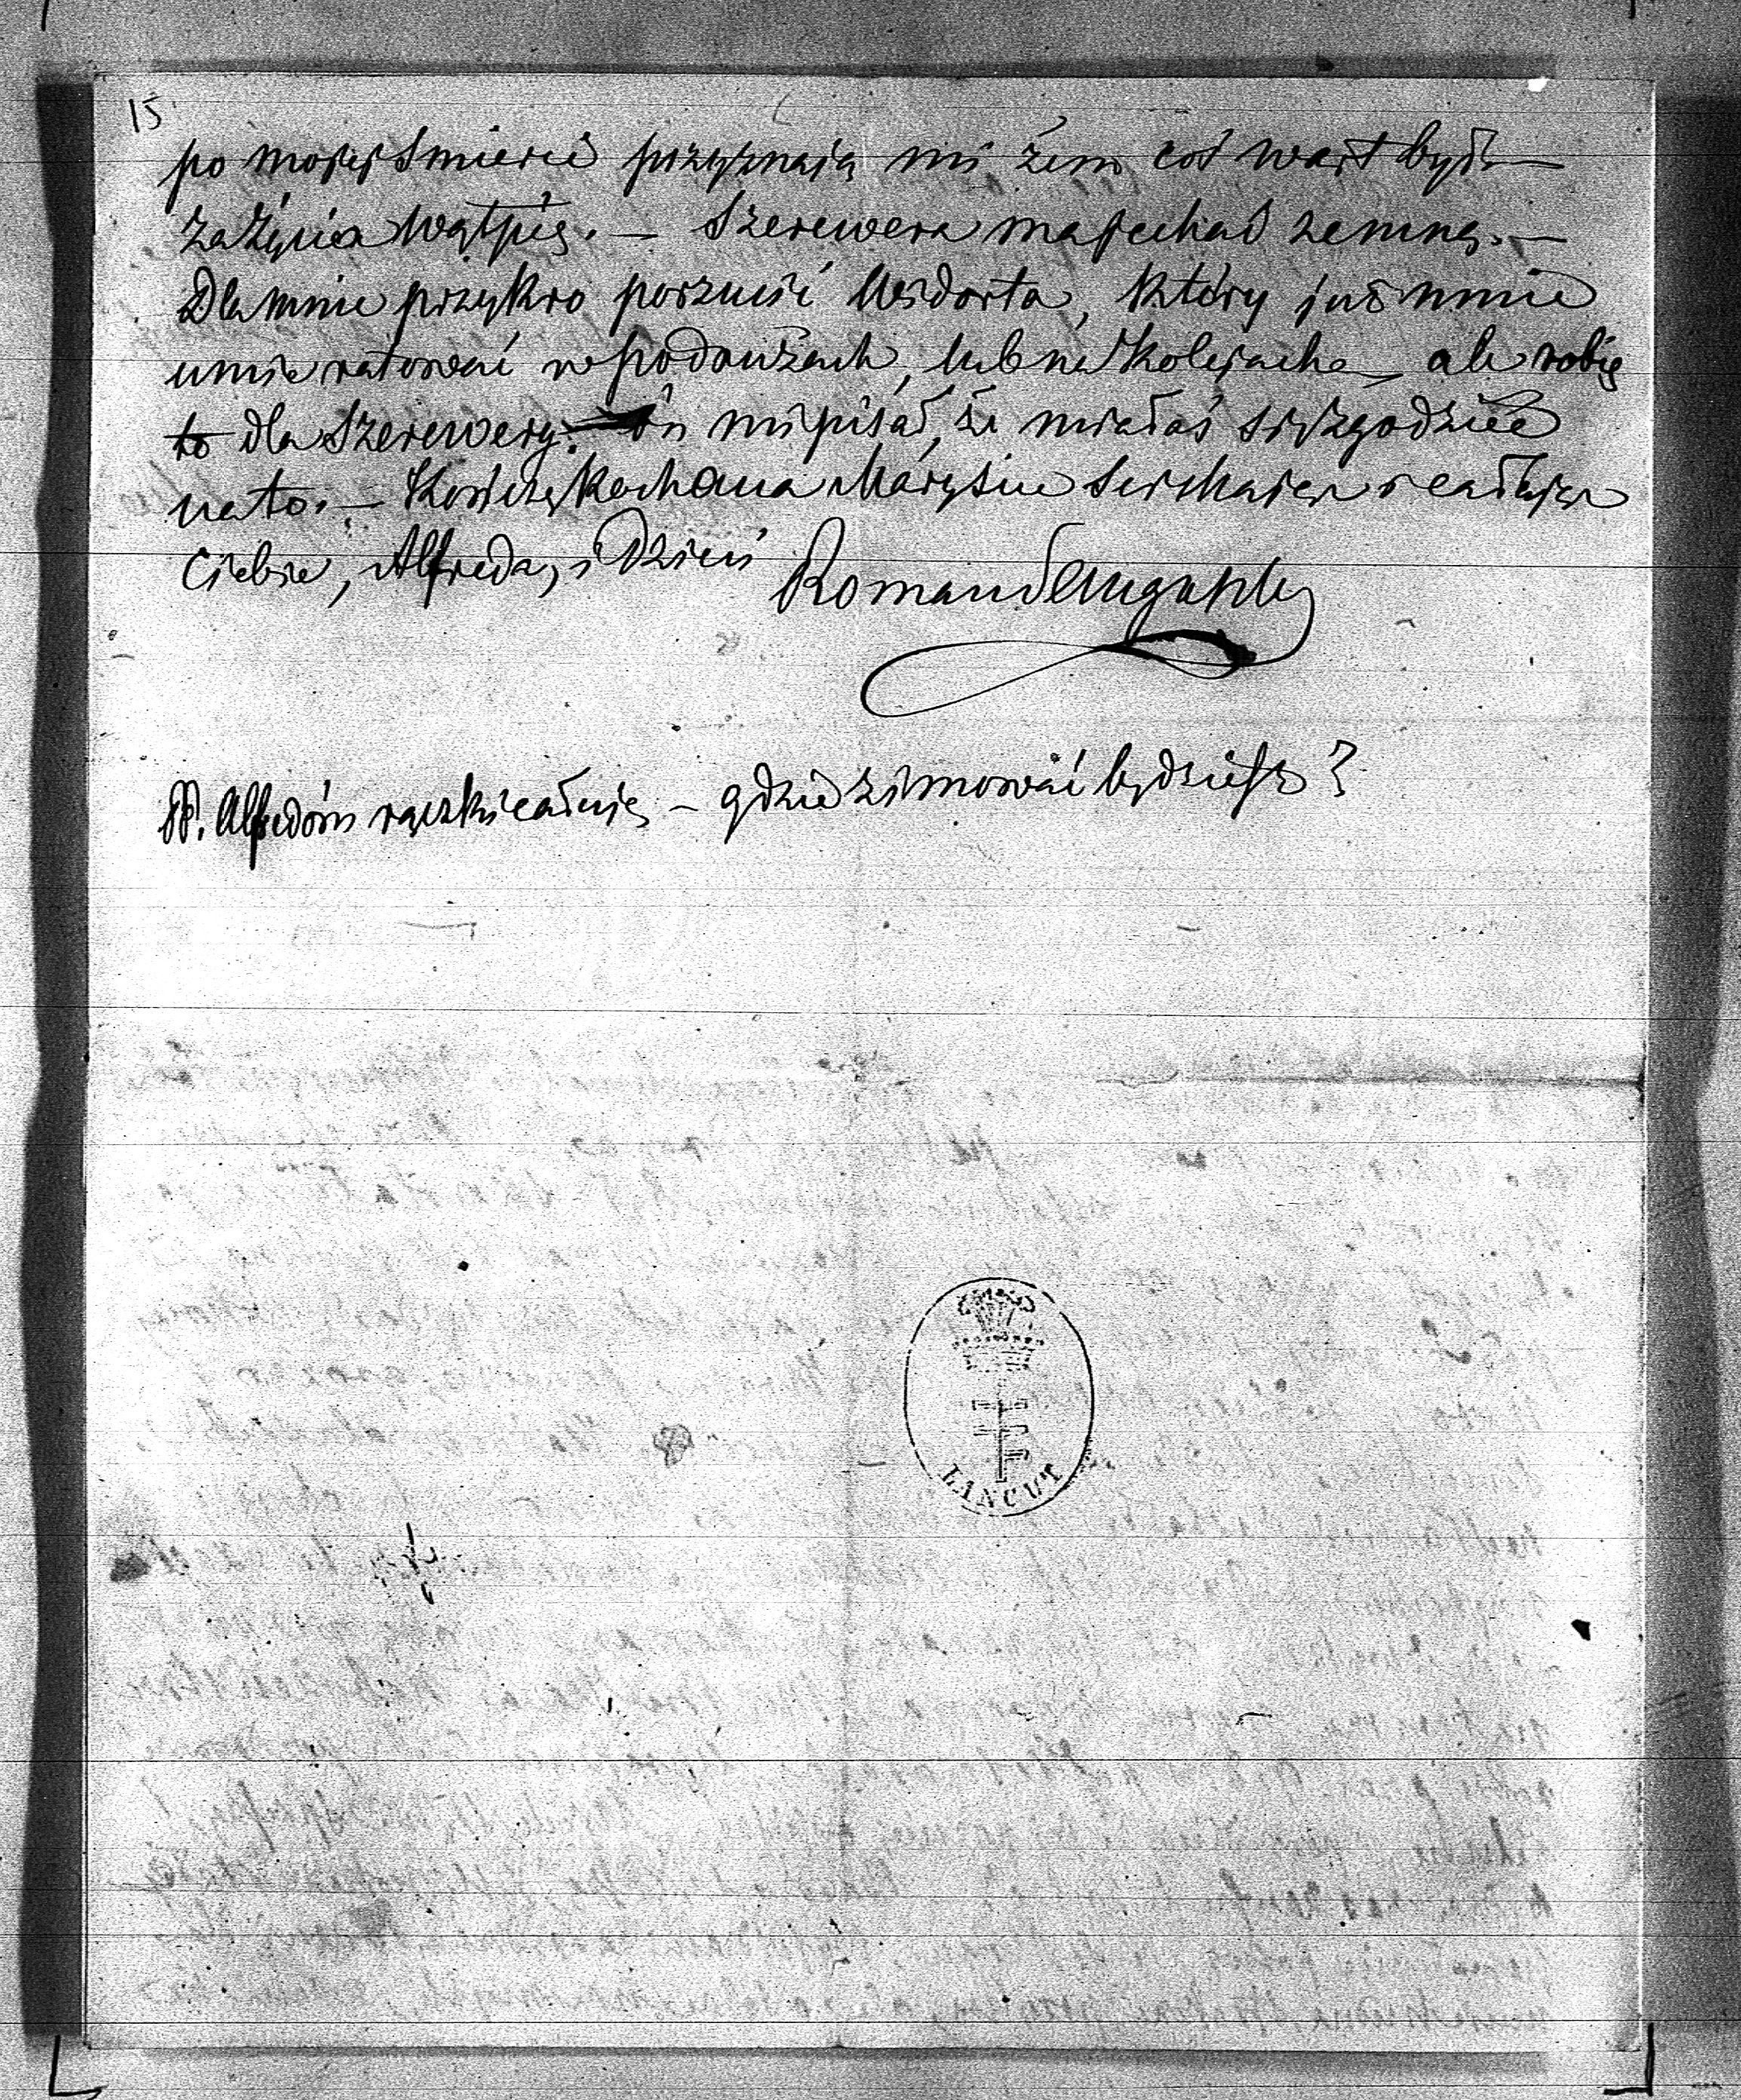 15
po mojej śmierci przyznają mi żem coś wart był —
za życia wątpię. — Szerewera ma jechać zemną. —
Dla mnie przykro porzucić który już mnie
umie ratować w podróżach, lub na kolejach, ale robię
to dla Szerewery. On mi pisał, że miałaś się zgodzić
na to. — Kończę kochana Marysiu ściskając i całując
Ciebie, Alfreda, i Dzieci Roman Sanguszko
PP. Alfredów rączki całuję — gdzie zimować będziesz?
ŁAŃCUT